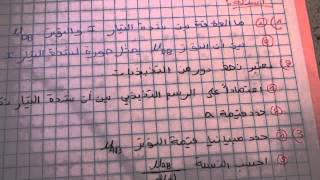 ① ما العلاقة بين شدة التيار I والتوتر U_AB
بين أن التوتر U_AB يمثل صورة لشدة التيار I
② نعتبر نصف دور من التذبذبات
① اعتمادا على الرسم التذبذبي بين أن شدة التيار
② حدد قيمة a
③ ① حدد مبيانيا قيمة التوتر U_AB
② احسب النسبة U_AB